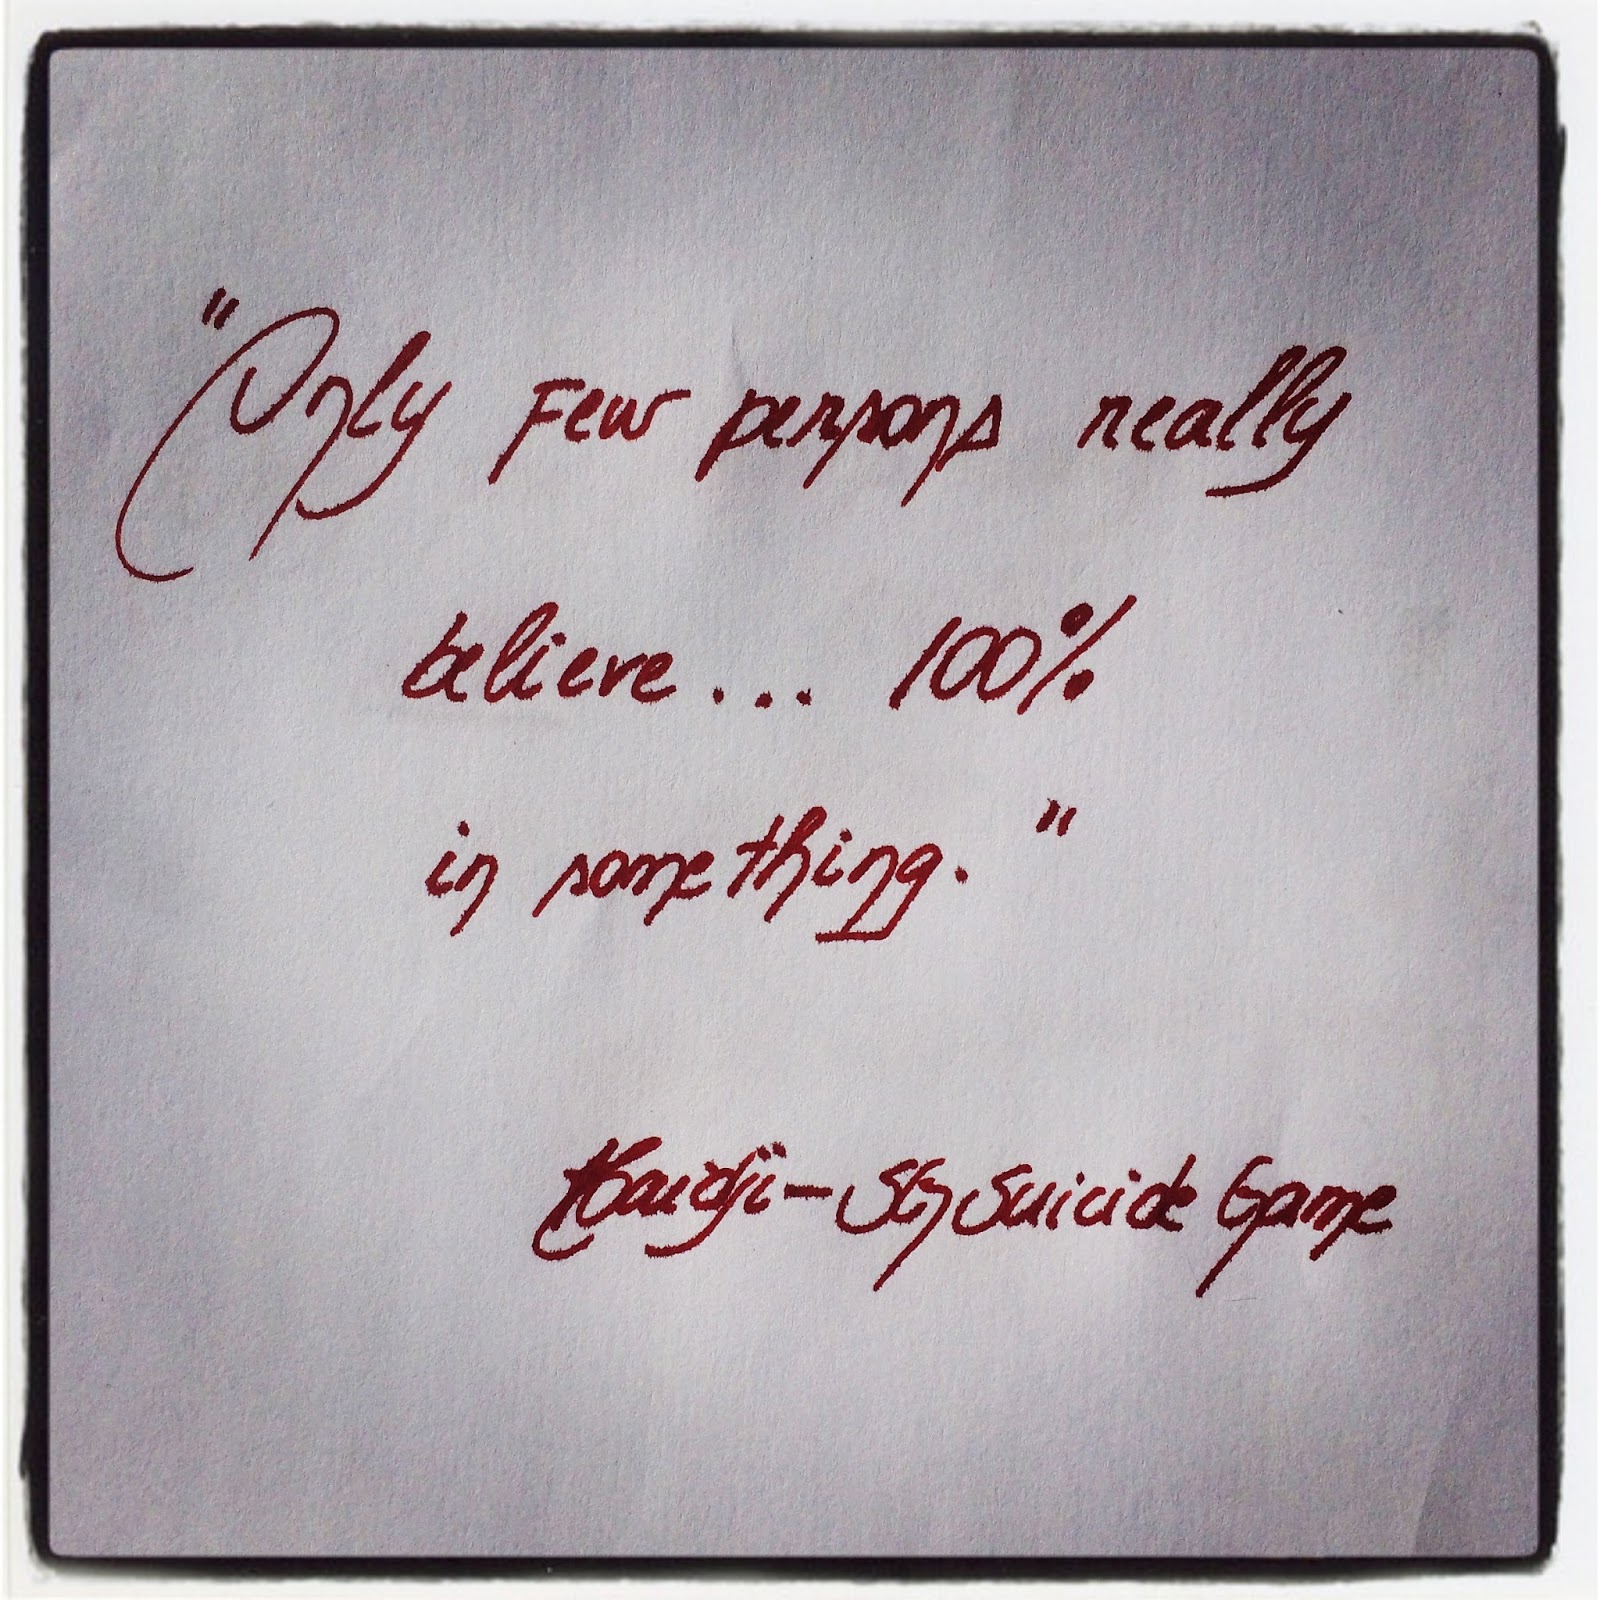 "Only Few persons really
believe... 100%
in something."
Haidji - SG Suicide Game